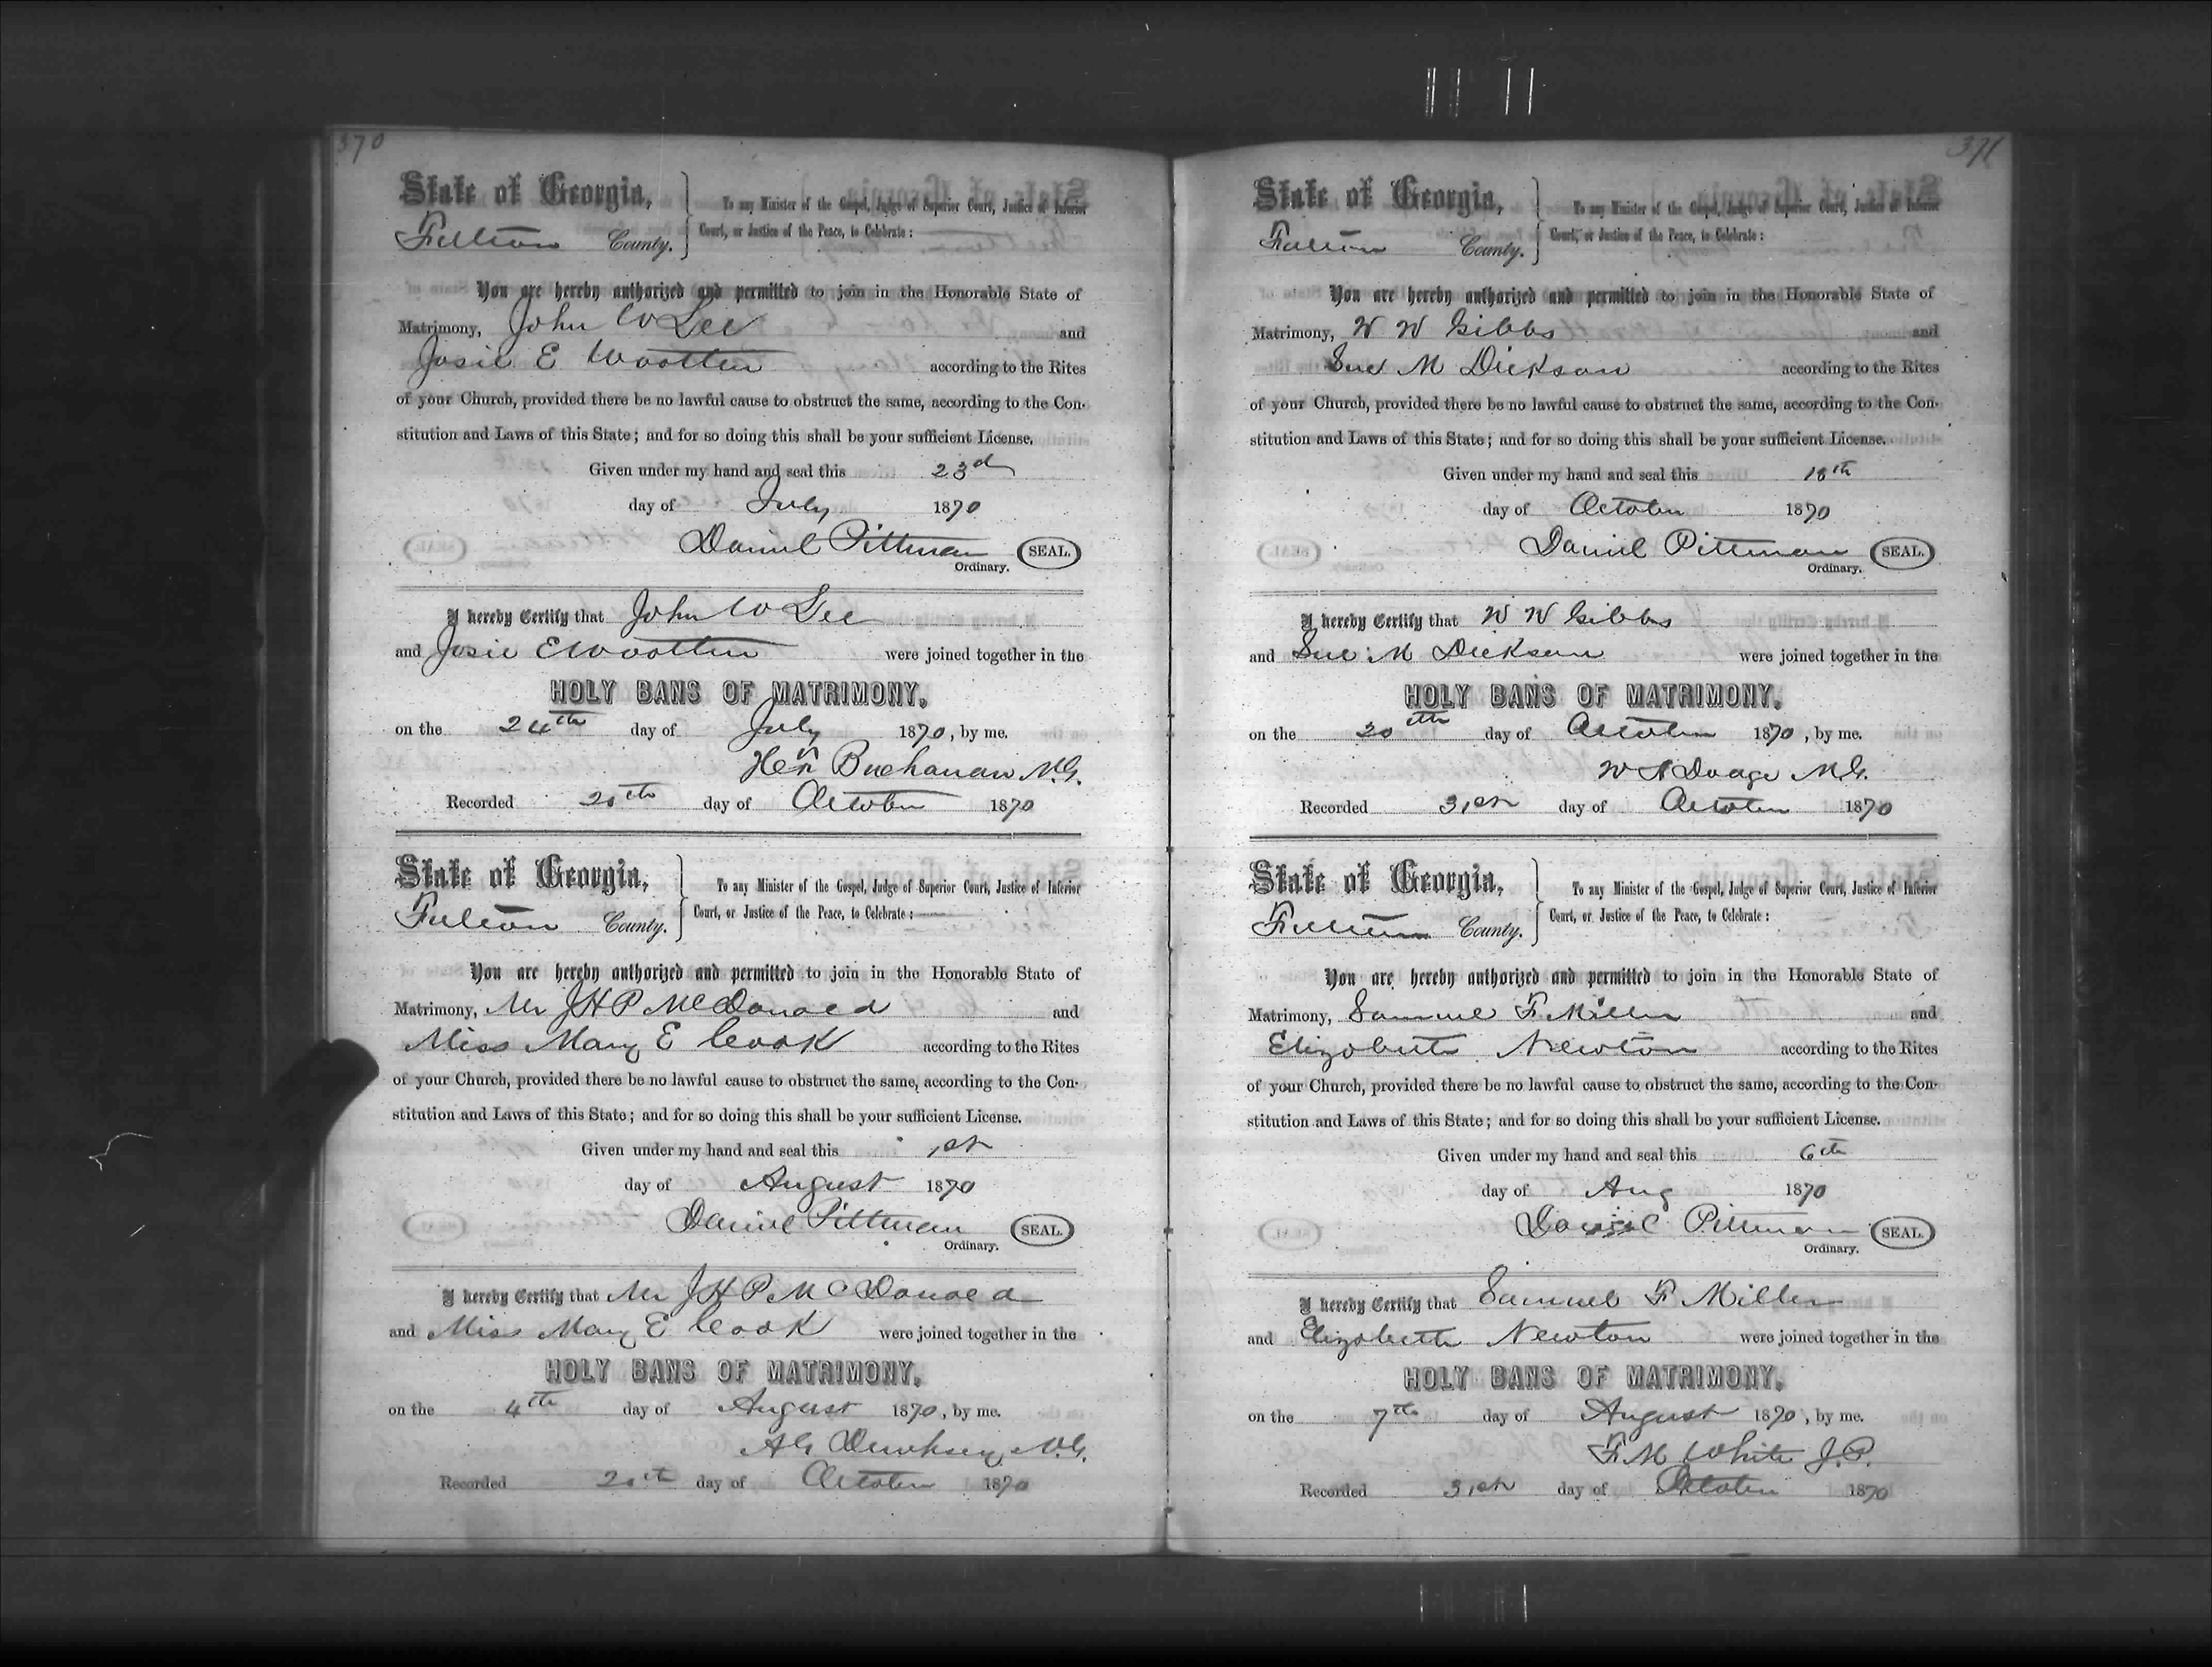 370
State of Georgia,
Fulton County.
To any Minister of the Gospel, Judge of Superior Court, Justice of Inferior
Court, or Justice of the Peace, to Celebrate:
You are hereby authorized and permitted to join in the Honorable State of
Matrimony, John W Lee and
Josie E Wootten according to the Rites
of your Church, provided there be no lawful cause to obstruct the same, according to the Con-
stitution and Laws of this State; and for so doing this shall be your sufficient License.
Given under my hand and seal this 23d
day of July 1870
Daniel Pittman SEAL.
Ordinary.
I hereby Certify that John W Lee
and Josie E Wootten were joined together in the
HOLY BANS OF MATRIMONY,
on the 24th day of July 1870, by me.
Buchanan M.G.
Recorded 20th day of October 1870
State of Georgia,
Fulton County.
To any Minister of the Gospel, Judge of Superior Court, Justice of Inferior
Court, or Justice of the Peace, to Celebrate:
You are hereby authorized and permitted to join in the Honorable State of
Matrimony, Mr J H P McDonald and
Miss Mary E Cook according to the Rites
of your Church, provided there be no lawful cause to obstruct the same, according to the Con-
stitution and Laws of this State; and for so doing this shall be your sufficient License.
Given under my hand and seal this 1st
day of August 1870
Daniel Pittman SEAL.
Ordinary.
I hereby Certify that Mr J H P McDonald
and Miss Mary E Cook were joined together in the
HOLY BANS OF MATRIMONY,
on the 4th day of August 1870, by me.
M.G.
Recorded 20th day of October 1870
371
State of Georgia,
Fulton County.
To any Minister of the Gospel, Judge of Superior Court, Justice of Inferior
Court, or Justice of the Peace, to Celebrate:
You are hereby authorized and permitted to join in the Honorable State of
Matrimony, W W Gibbs and
Sue M Dickson according to the Rites
of your Church, provided there be no lawful cause to obstruct the same, according to the Con-
stitution and Laws of this State; and for so doing this shall be your sufficient License.
Given under my hand and seal this 18th
day of October 1870
Daniel Pittman SEAL.
Ordinary.
I hereby Certify that W W Gibbs
and Sue M Dickson were joined together in the
HOLY BANS OF MATRIMONY,
on the 20th day of October 1870, by me.
W A Dodge M.G.
Recorded 31st day of October 1870
State of Georgia,
Fulton County.
To any Minister of the Gospel, Judge of Superior Court, Justice of Inferior
Court, or Justice of the Peace, to Celebrate:
You are hereby authorized and permitted to join in the Honorable State of
Matrimony, Samuel F Miller and
Elizabeth Newton according to the Rites
of your Church, provided there be no lawful cause to obstruct the same, according to the Con-
stitution and Laws of this State; and for so doing this shall be your sufficient License.
Given under my hand and seal this 6th
day of Aug 1870
Daniel Pittman SEAL.
Ordinary.
I hereby Certify that Samuel F Miller
and Elizabeth Newton were joined together in the
HOLY BANS OF MATRIMONY,
on the 7th day of August 1870, by me.
F M White J.P.
Recorded 31st day of October 1870